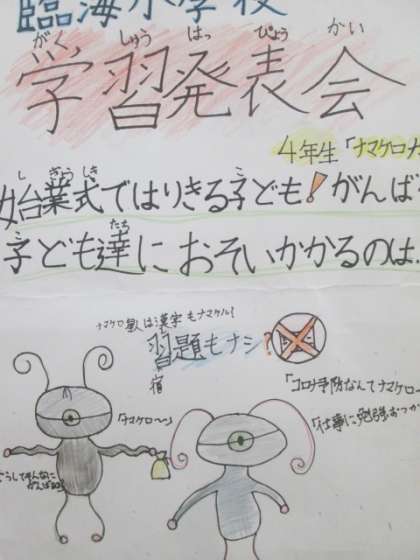 臨海小学校
がく しゅう はっ ぴょう かい
学習発表会
4年生「ナマケロ
し ぎょう しき
始業式ではりきる子ども!がんば
たち
子ども達におそいかかるのは
ナマケロ星人は漢字もナマケル!
習題もナシ?
宿
「コロナ予防なんてナマケロ〜
「ナマケロ〜」
「仕事に勉強おつか
どうしてそんなに
がんばる